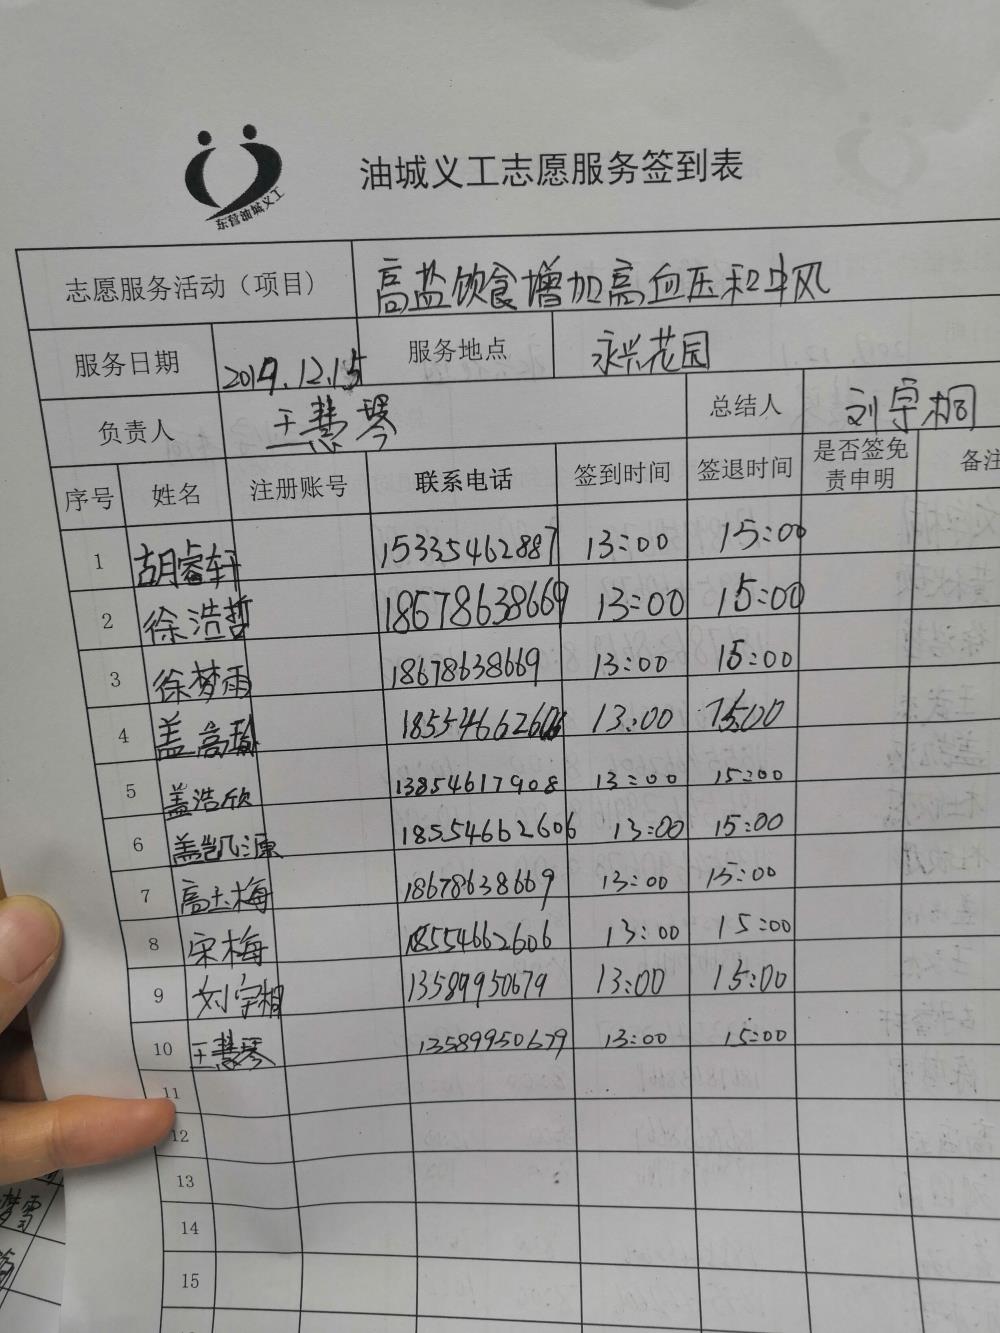 东营油城义工
油城义工志愿服务签到表
志愿服务活动（项目） 高盐饮食增加高血压和中风
服务日期 2019.12.15 服务地点 永兴花园
负责人 王慧琴 总结人 刘宇桐
序号 姓名 注册账号 联系电话 签到时间 签退时间 是否签免责申明 备注
1 胡睿轩 15335462887 13:00 15:00
2 徐浩哲 18678638669 13:00 15:00
3 徐梦雨 18678638669 13:00 15:00
4 盖 18554662606 13:00 15:00
5 盖浩欣 13854617908 13:00 15:00
6 盖凯源 18554662606 13:00 15:00
7 高玉梅 18678638669 13:00 15:00
8 宋梅 18554662606 13:00 15:00
9 刘宇桐 13589950679 13:00 15:00
10 王慧琴 13589950679 13:00 15:00
11
12
13
14
15